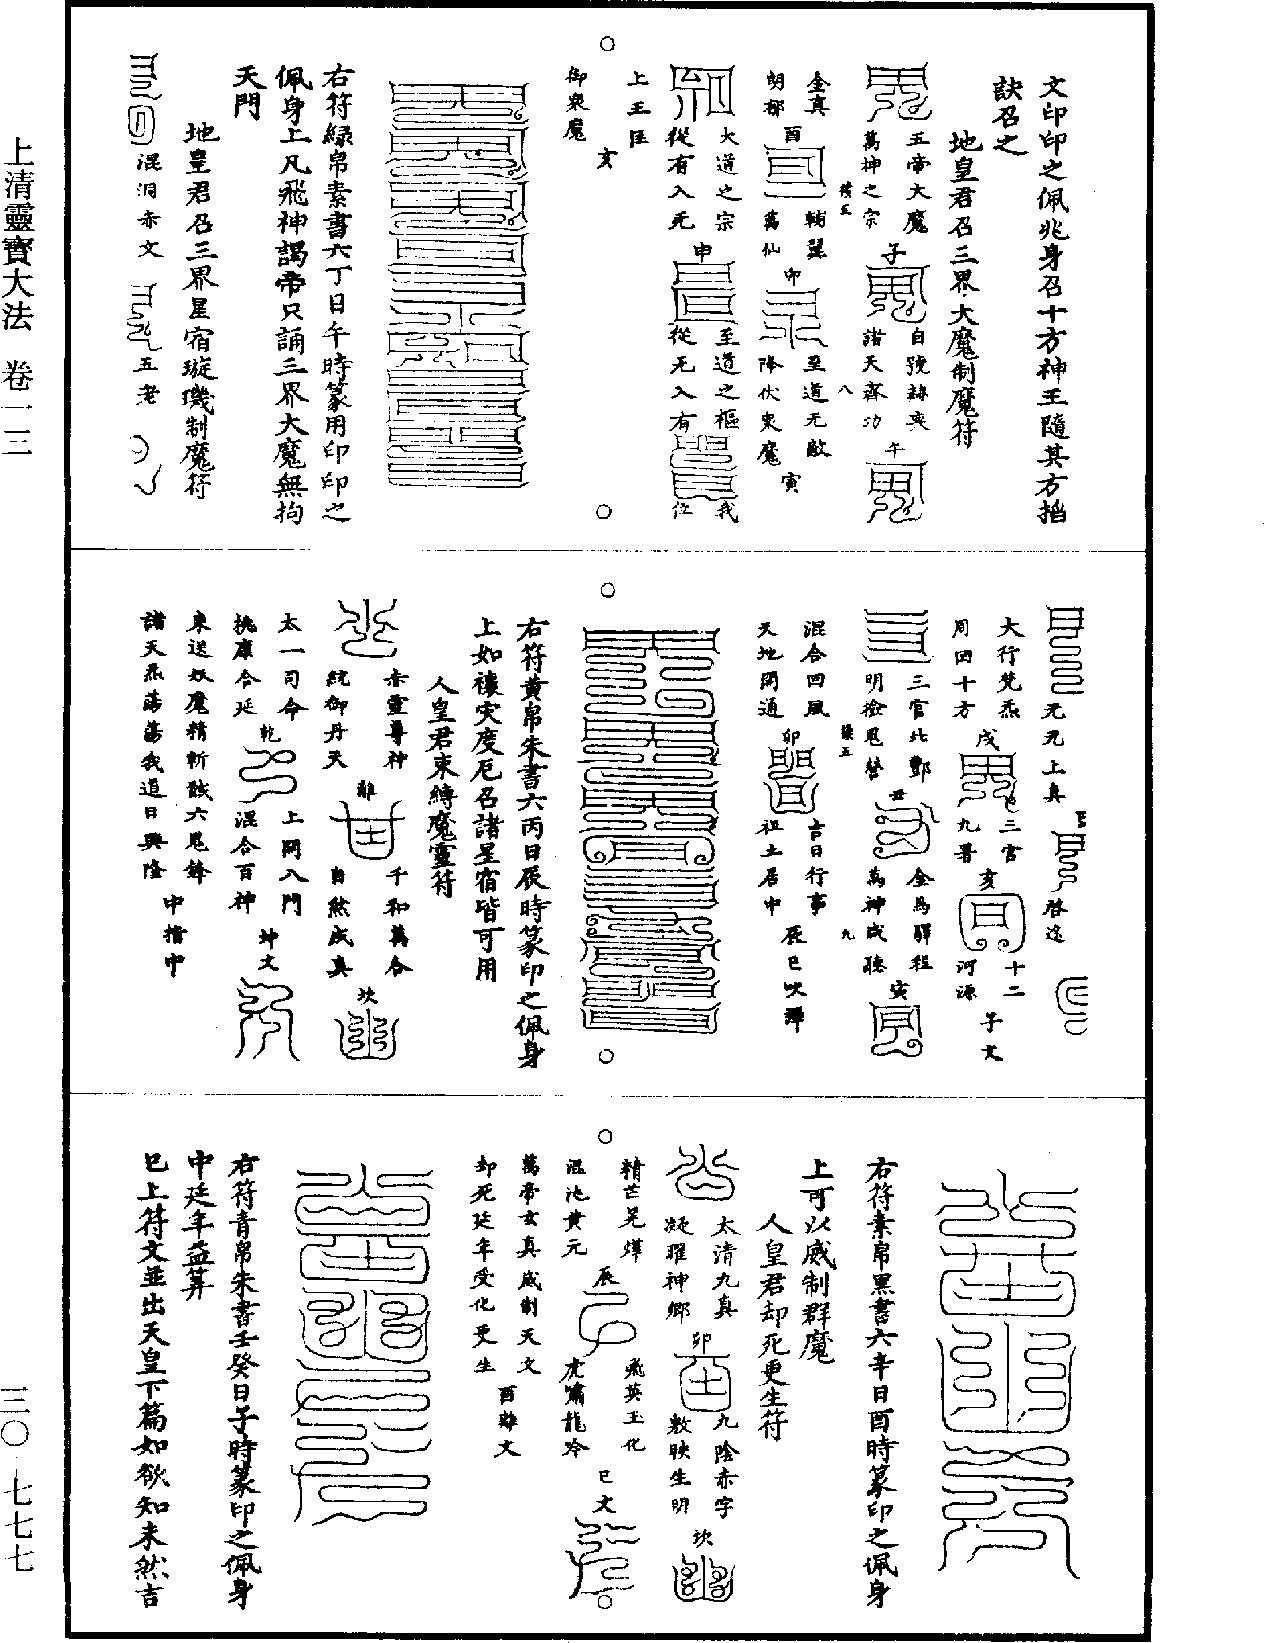 上清靈寶大法　卷一三
三〇·七七七
文印印之佩兆身召十方神王隨其方掐
訣召之
地皇君召三界大魔制魔符
五帝大魔
萬神之宗
子
自號赫奕
諸天齊功
午
金真
朗郁
酉
輔翼
萬仙
卯
至道无敵
降伏東魔
寅
大道之宗
從有入无
申
至道之樞
從无入有
我
位
上王臣
御衆魔
亥
右符綠帛素書六丁日午時篆用印印之
佩身上凡飛神謁帝只誦三界大魔無拘
天門
地皇君召三界星宿璇璣制魔符
混洞赤文
五老
元元上真
啓途
大行梵炁
周回十方
戌
三官
九署
亥
十二
河源
子文
三官北酆
明檢鬼營
丑
金馬驛程
萬神咸聽
寅
混合回風
天地開通
卯
吉日行事
祖土居中
辰巳
右符黃帛朱書六丙日辰時篆印之佩身
上如禳災度厄召諸星宿皆可用
人皇君束縛魔靈符
赤靈尊神
統御丹天
離
千和萬合
自然成真
坎
太一司命
桃康合延
乾
上開八門
混合百神
坤文
東送妖魔精斬馘六鬼鋒
諸天炁蕩蕩我道日興隆
中指中
右符素帛黑書六辛日酉時篆印之佩身
上可以威制群魔
人皇君却死更生符
太清九真
凝曜神鄉
卯
九陰赤字
敷映生明
坎
精芒晃燁
混沌黃元
辰
飛英玉化
虎嘯龍吟
巳文
萬帝玄真威制天文
却死延年受化更生
酉離文
右符青帛朱書壬癸日子時篆印之佩身
中延年益算
已上符文並出天皇下篇如欲知未然吉